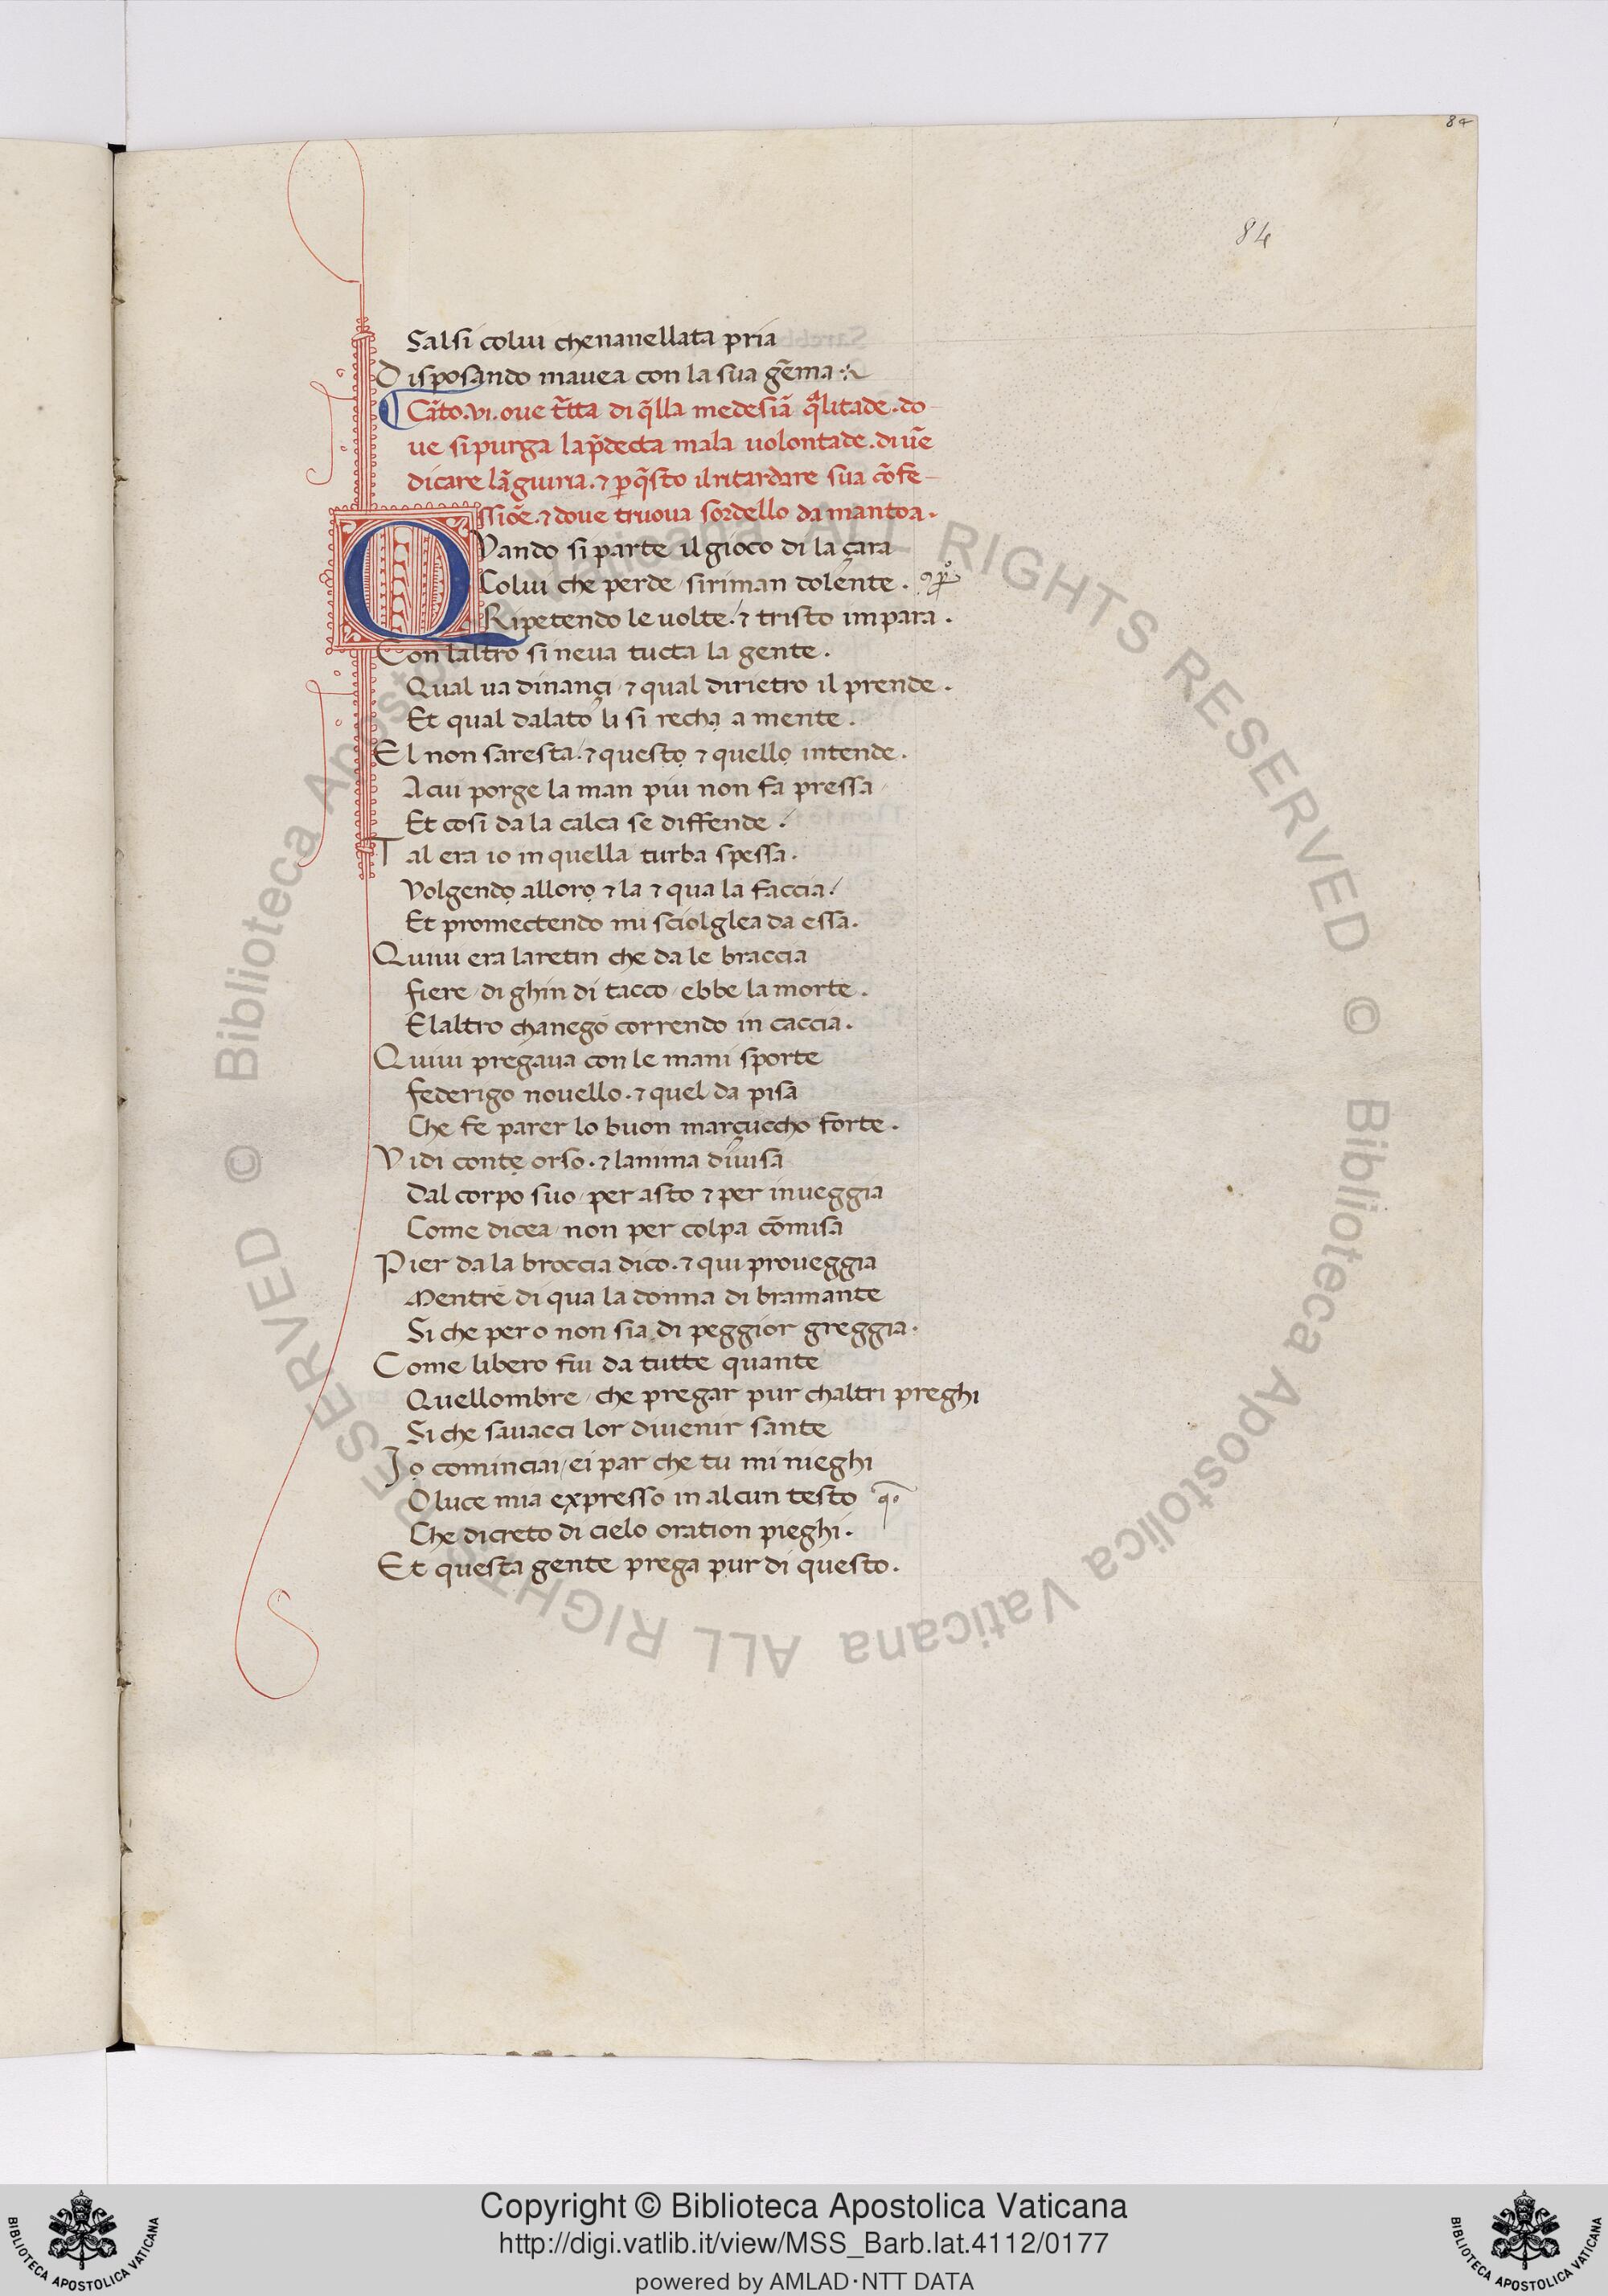 84
84
Salsi colui chenanellata pria
Disposando mauea con la sua gēma
Cāto. vi. oue t̄tta di q̄lla medesiā q̄litade. do-
ue si purga la p̄decta mala uolontade. di uē
dicare lāgiuria. ⁊ p q̄sto il ritardare sua cōfe-
ssiōe. ⁊ doue truoua sordello da mantoa.
QVando si parte il gioco di la çara
Colui che perde / si riman dolente.
Ripetendo le uolte / ⁊ tristo impara.
Con laltro si neua tucta la gente.
Qual ua dinançi / ⁊ qual dirietro il prende.
Et qual dalato li si recha a mente.
El non saresta / ⁊ questo ⁊ quello intende.
A cui porge la man piu non fa pressa /
Et cosi da la calca se diffende /
Tal era io in quella turba spessa.
Volgendo alloro ⁊ la ⁊ qua la faccia /
Et promectendo mi sciolglea da essa.
Quiui era laretin che da le braccia
fiere / di ghin di tacco / ebbe la morte.
Elaltro chanego correndo in caccia.
Quiui pregaua con le mani sporte
federigo nouello. ⁊ quel da pisa
Che fe parer lo buon marçuccho forte.
Vidi conte orso. ⁊ lanima diuisa
Dal corpo suo / per asto ⁊ per inueggia
Come dicea / non per colpa cōmisa
Pier da la broccia dico. ⁊ qui proueggia
Mentre di qua la donna di bramante
Si che pero non sia di peggior greggia.
Come libero fui da tutte quante
Quellombre / che pregar pur chaltri preghi
Si che sauacci lor diuenir sante
Io cominciai / ei par che tu mi nieghi
O luce mia expresso in alcun testo
Che dicreto di cielo oration pieghi.
Et questa gente prega pur di questo.
© Biblioteca Apostolica Vaticana ALL RIGHTS RESERVED © Biblioteca Apostolica Vaticana ALL RIGHTS RESERVED
Copyright © Biblioteca Apostolica Vaticana
http://digi.vatlib.it/view/MSS_Barb.lat.4112/0177
powered by AMLAD·NTT DATA
BIBLIOTECA APOSTOLICA VATICANA
BIBLIOTECA APOSTOLICA VATICANA